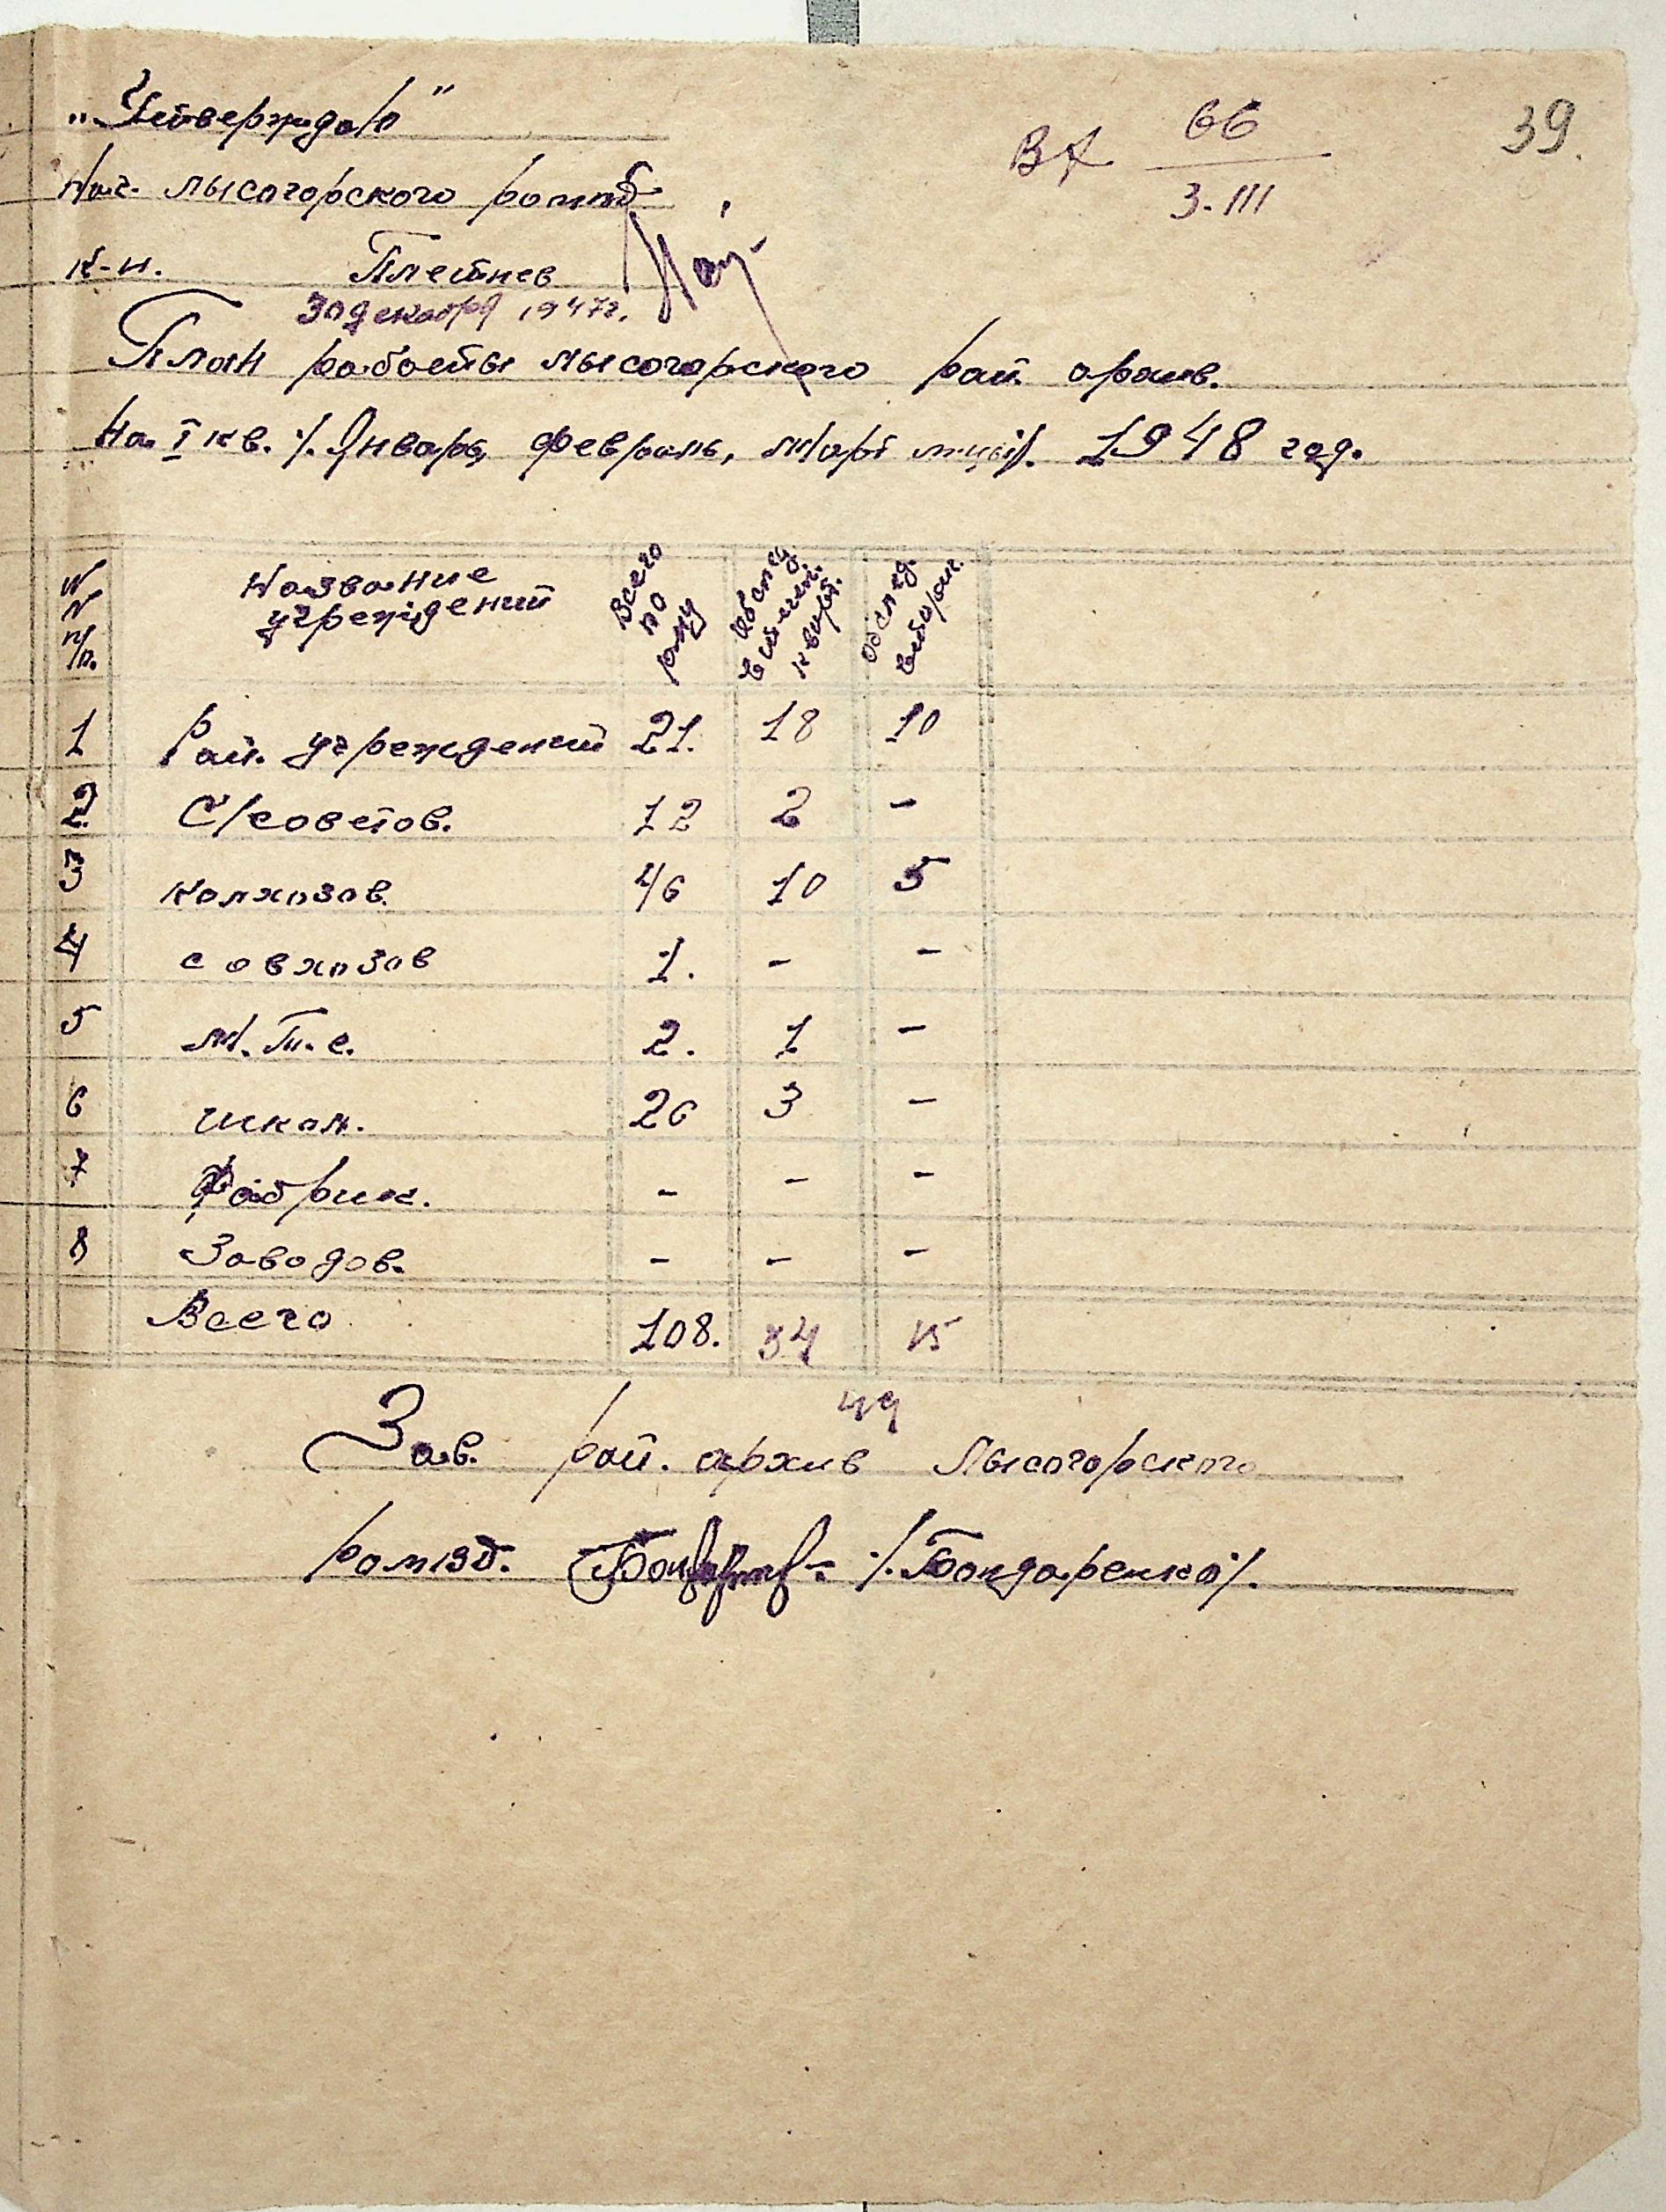 „Утверждаю"
ВХ 66
3.III
39.
Нач. Лысогорского
к-н. Плетнев
30 декабря 1947г.
План работы Лысогорского рай. архив.
На I кв. /. Январь, февраль, март м-цы/. 1948 год.
№№ п/п. Название учреждений Всего по р-ну Обслед. в кварт. Обслед.
1 Рай. учреждений 21. 18 10
2. С/советов. 12 2 -
3 колхозов. 46 10 5
4 совхозов 1. - -
5 М.т.с. 2. 1 -
6 школ. 26 3 -
7 Фабрик. - - -
8 Заводов. - - -
Всего 108. 34 15
49
Зав. рай. архив Лысогорского
/. Бондаренко/.